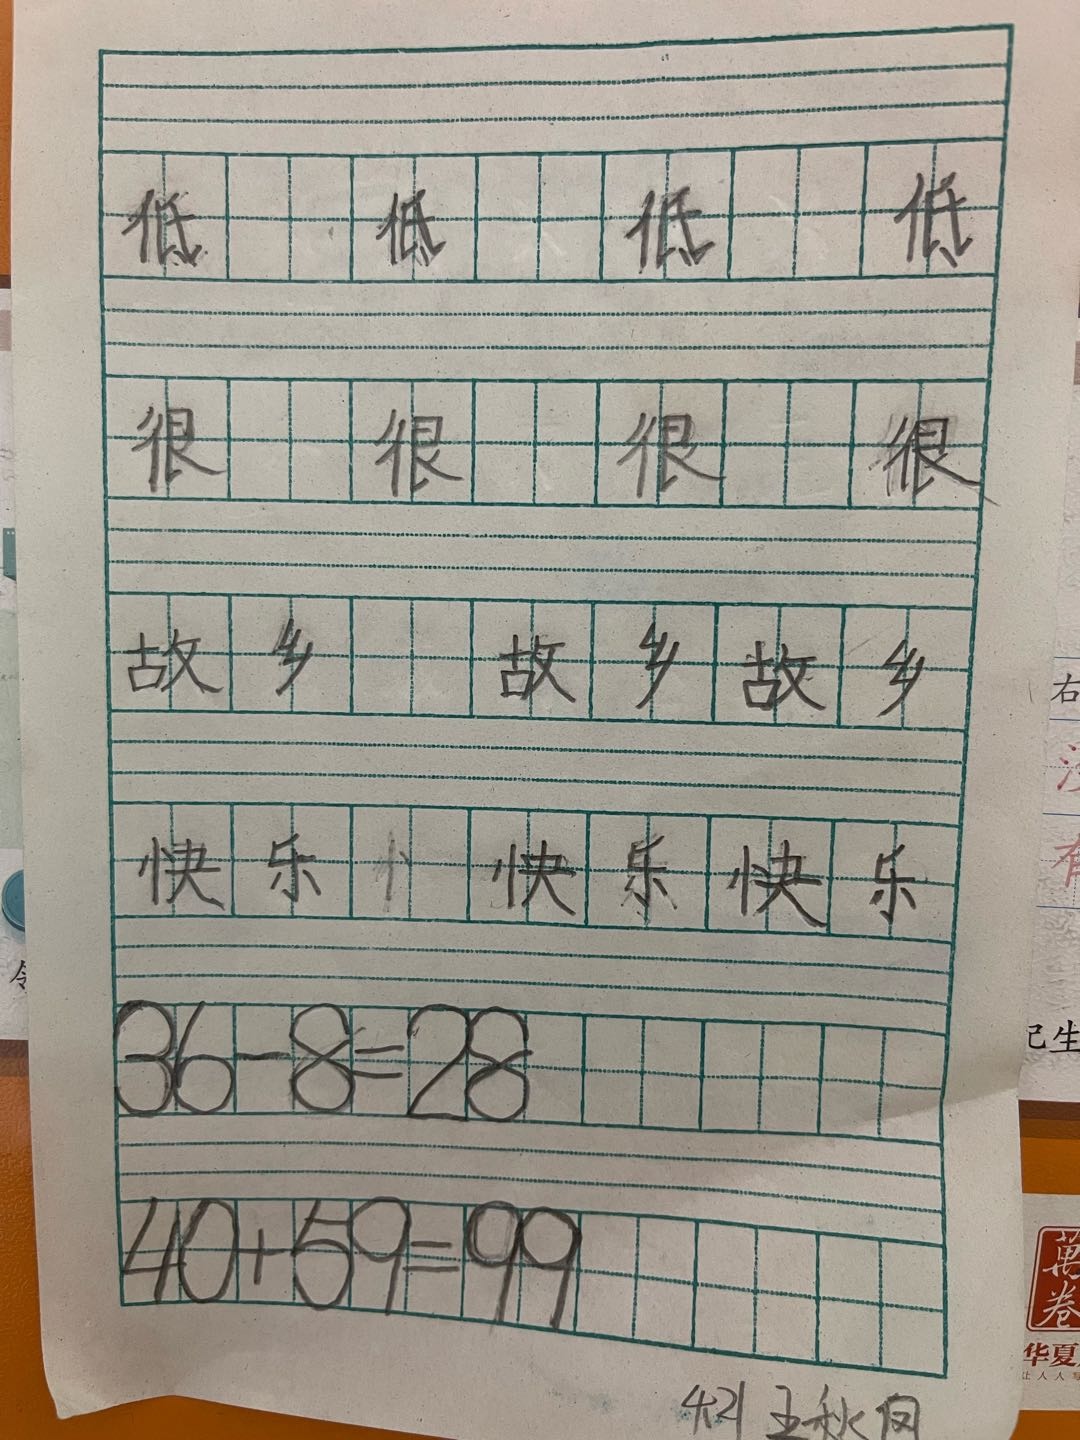 低 低 低 低
很 很 很 很
故乡 故乡 故乡
快乐 忄 快乐 快乐
36-8=28
40+59=99
王秋
右
己生
萬卷
华夏
让人人写